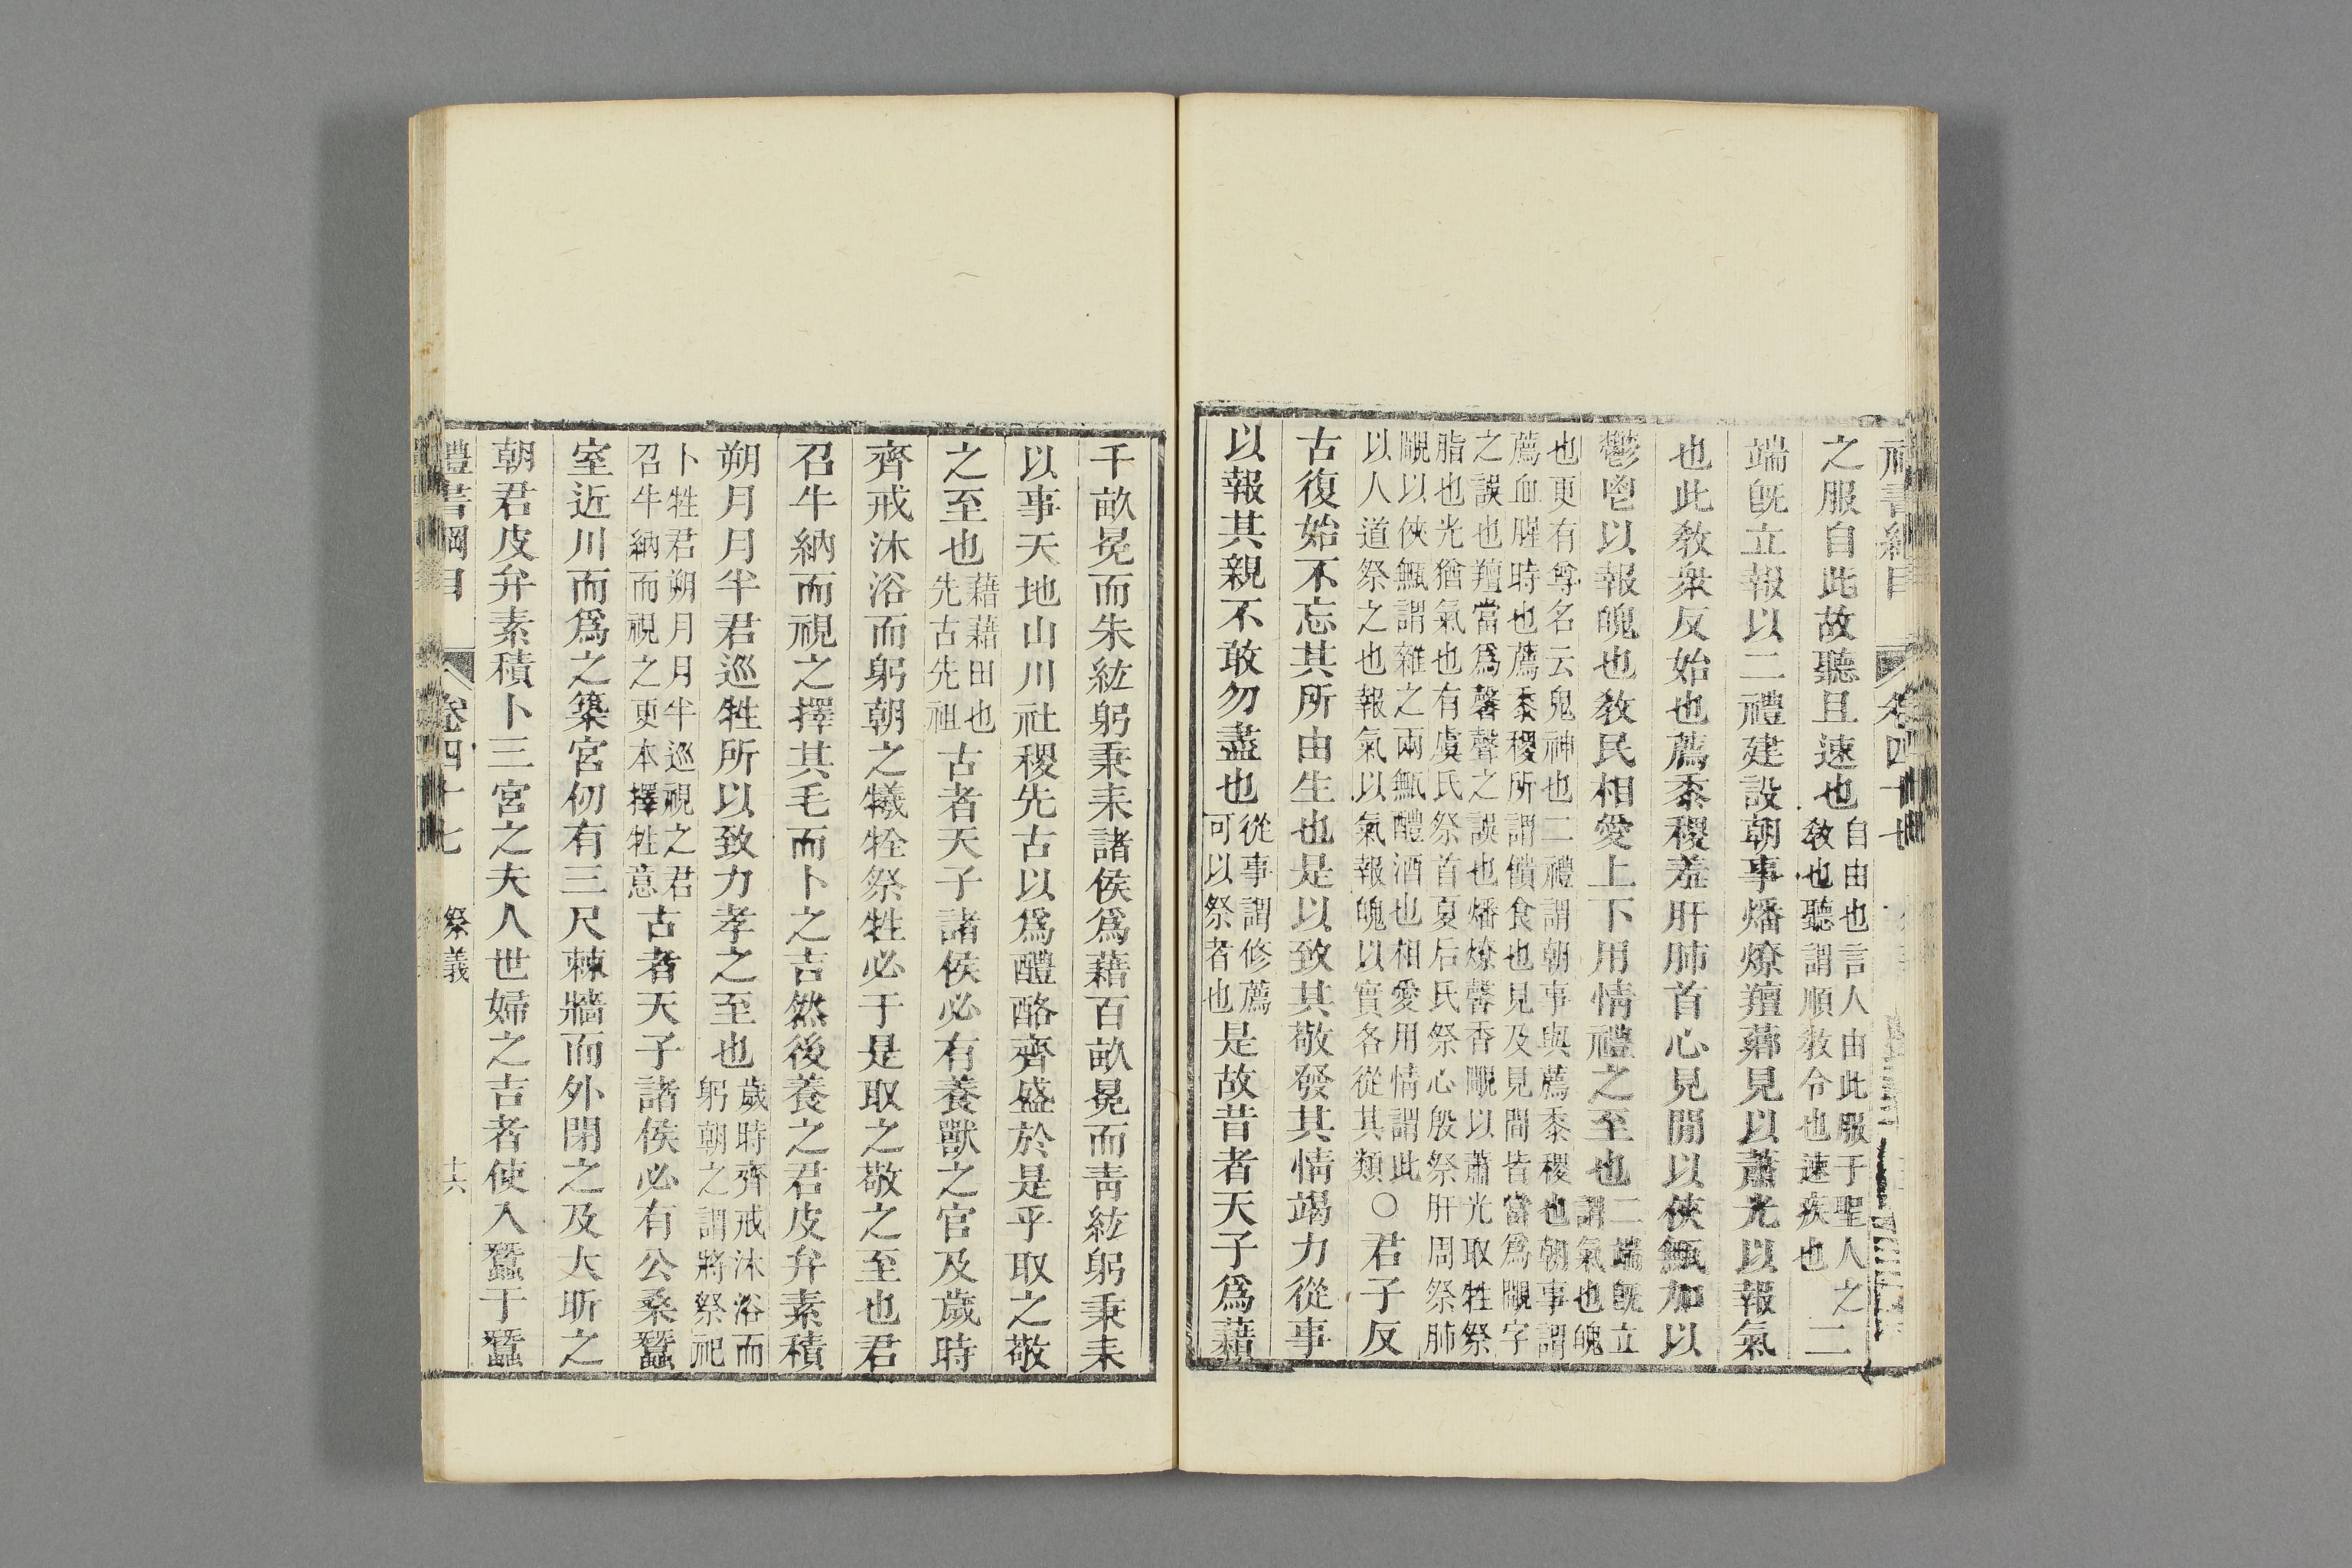 之服自此故聽且速也自由也言人由此服于聖人之教也聽謂順教令也速疾也二
端旣立報以二禮建設朝事燔燎羶薌見以蕭光以報氣
也此敎衆反始也薦黍稷羞肝肺首心見間以俠甒加以
鬱鬯以報魄也敎民相愛上下用情禮之至也二端旣立謂氣也魄
也更有尊名云鬼神也二禮謂朝事與薦黍稷也朝事謂
薦血腥時也薦黍稷所謂饋食也見及見間皆當爲覸字
之誤也羶當爲馨聲之誤也燔燎馨香覸以蕭光取牲祭
脂也光猶氣也有虞氏祭首夏后氏祭心殷祭肝周祭肺
覸以俠甒謂雜之兩甒醴酒也相愛用情謂此
以人道祭之也報氣以氣報魄以實各從其類○君子反
古復始不忘其所由生也是以致其敬發其情竭力從事
以報其親不敢勿盡也從事謂修薦可以祭者也是故昔者天子爲藉
千畝冕而朱紘躬秉耒諸侯爲藉百畝冕而靑紘躬秉耒
以事天地山川社稷先古以爲醴酪齊盛於是乎取之敬
之至也藉藉田也先古先祖古者天子諸侯必有養獸之官及歲時
齊戒沐浴而躬朝之犧牷祭牲必于是取之敬之至也君
召牛納而視之擇其毛而卜之吉然後養之君皮弁素積
朔月月半君巡牲所以致力孝之至也歲時齊戒沐浴而躬朝之謂將祭祀
卜牲君朔月月半巡視之君召牛納而視之更本擇牲意古者天子諸侯必有公桑蠶
室近川而爲之築宮仞有三尺棘牆而外閉之及大昕之
朝君皮弁素積卜三宮之夫人世婦之吉者使入蠶于蠶
禮書綱目 卷四十七 祭義 十六